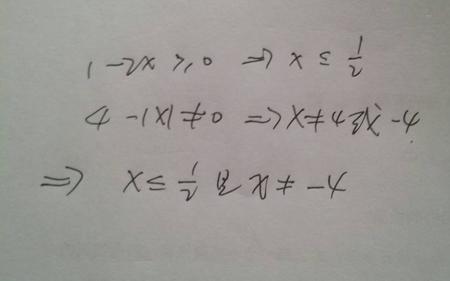 1-2x≥0 ⇒ x≤1/2
4-|x|≠0 ⇒ x≠4及-4
⇒ x≤1/2 且 x≠-4